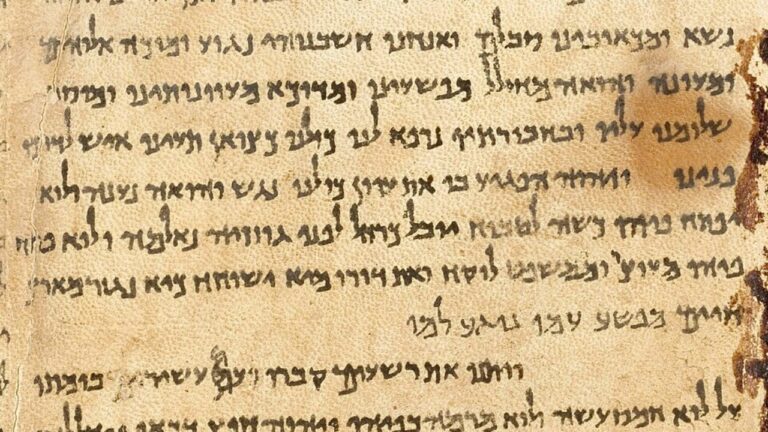 נשא ומכאובינו סבלם ואנחנו חשבנוהי נגוע ומוכה אלוהים
ומעונה והואה מחולל מפשעינו ומדוכא מעוונותינו ומוסר
שלומנו עליו ובחבורתיו נרפא לנו כולנו כצואן תעינו איש לדרכו
פנינו ויהוה הפגיע בו את עוון כולנו נגש והואה נענה ולוא
יפתח פיהו כשה לטבוח יובל כרחל לפני גוזזיה נאלמה ולוא פתח
פיהו מעוצר ומשפט לוקח ואת דורו מיא ישוחח כיא נגזר מארץ
חיים מפשע עמו נוגע למו
ויתנו את רשעים קברו בומתו
על לוא חמס עשה ולוא מרמה בפיהו ויהוה חפץ דכאו